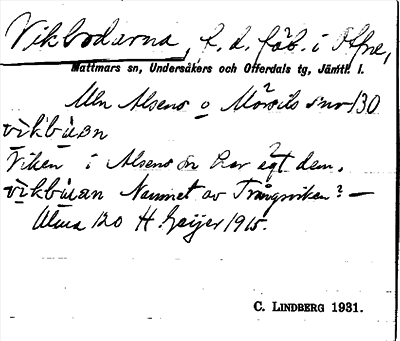 Vikbodarna, f. d. fäb. i Offne,
Mattmars sn, Undersåkers och Offerdals tg, Jämtl. l.
Mln Alsens o Mörsils snr 130
vikbuan
Viken i Alsens sn har ägt dem.
vikbuan Namnet av Trångsviken? —
Alsen 120 H. Geijer 1915.
C. LINDBERG 1931.